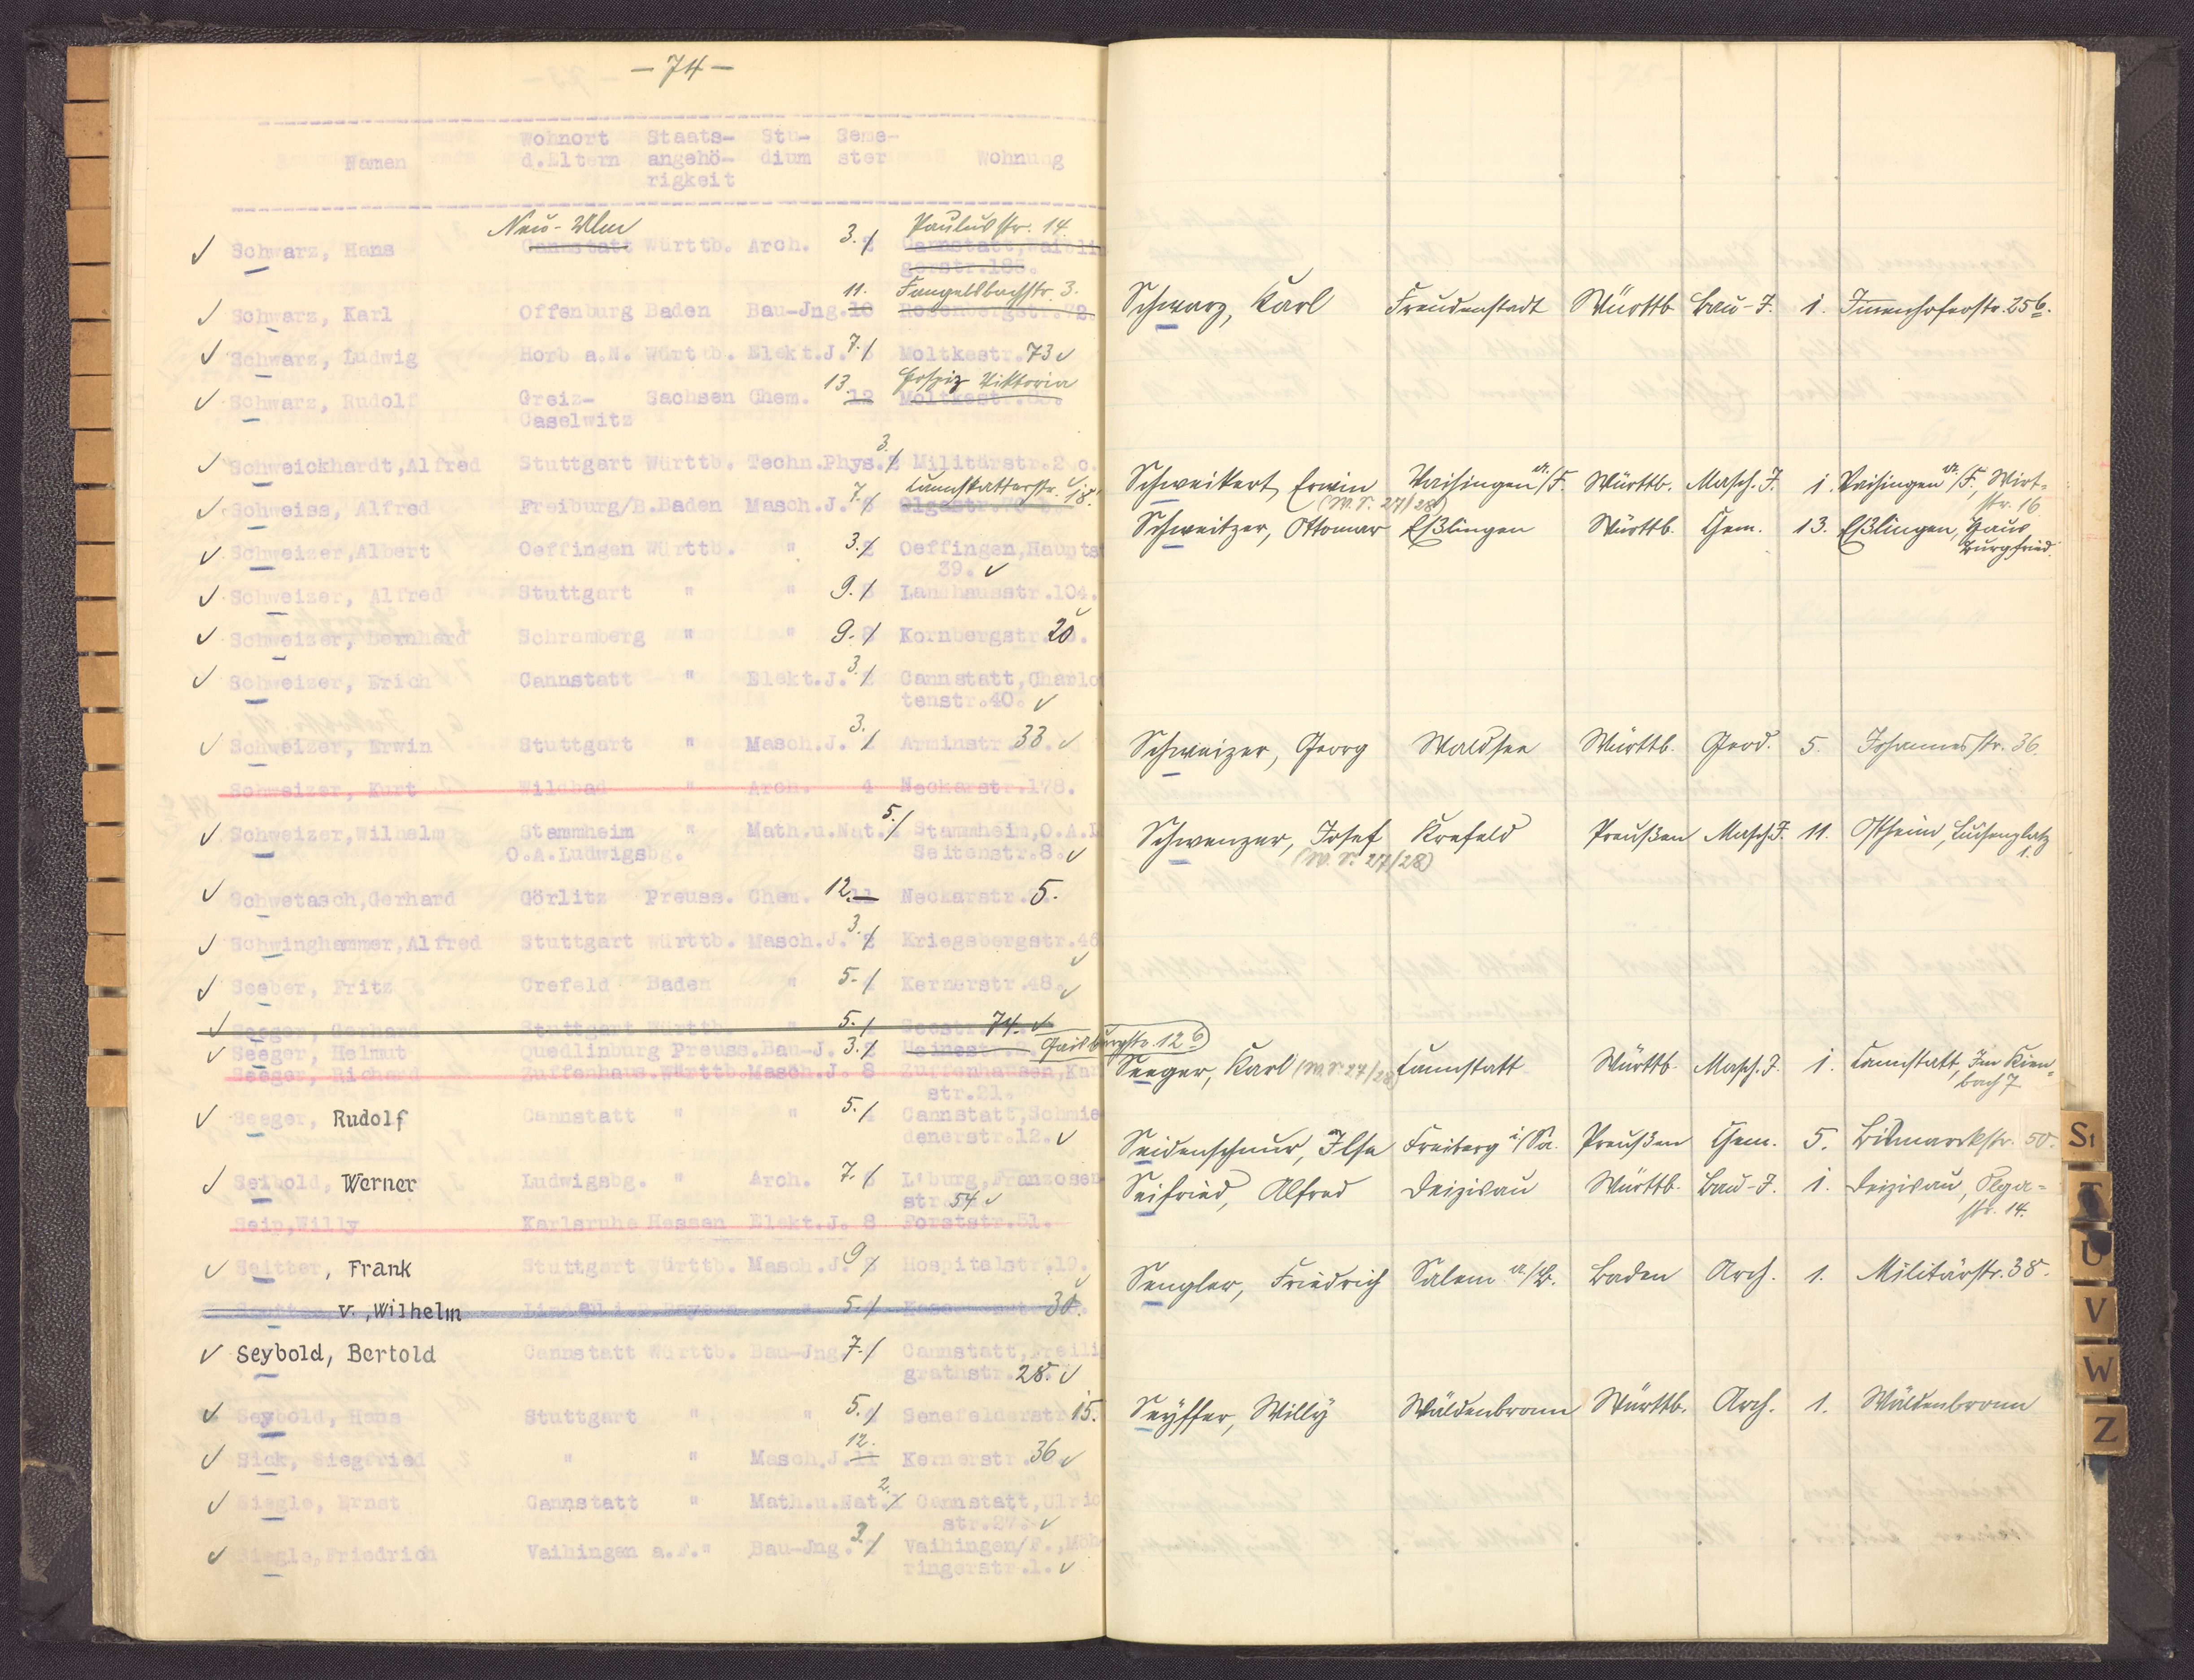 — 74 —
Wohnort Staats- Stu- Seme-
Namen d.Eltern angehö- dium ster Wohnung
rigkeit
Neu-Ulm Paulusstr. 14.
Schwarz, Hans Cannstatt Württb. Arch. 3. 2 Cannstatt, Waiblin
gerstr.185.
11. Fangelsbachstr. 3.
Schwarz, Karl Offenburg Baden Bau-Jng. 10 Rosenbergstr.72.
Schwarz, Ludwig Horb a.N. Württb. Elekt.J. 7. Moltkestr. 73
13. Hospiz Viktoria
Schwarz, Rudolf Greiz- Sachsen Chem. 12 Moltkestr.
Caselwitz
Schweickhardt,Alfred Stuttgart Württb. Techn.Phys. 3. 2 Militärstr.2 c.
Cannstatterstr. 18.
Schweiss, Alfred Freiburg/B.Baden Masch.J. 7. Olgastr.
Schweizer,Albert Oeffingen Württb. " 3. 2 Oeffingen,Haupts
39.
Schweizer, Alfred Stuttgart " " 9. 8 Landhausstr.104.
Schweizer, Bernhard Schramberg " " 9. 8 Kornbergstr. 20.
Schweizer, Erich Cannstatt " Elekt.J. 3. 2 Cannstatt,Charlo
tenstr.40.
Schweizer, Erwin Stuttgart " Masch.J. 3. 2 Arminstr. 33.
Schweizer, Kurt Wildbad " Arch. 4 Neckarstr.178.
Schweizer,Wilhelm Stammheim " Math.u.Nat. 5. Stammheim,O.A.L
O.A.Ludwigsbg. Seitenstr.8.
Schwetasch,Gerhard Görlitz Preuss. Chem. 12. 11 Neckarstr. 5.
Schwinghammer,Alfred Stuttgart Württb. Masch.J. 3. 2 Kriegsbergstr.46
Seeber, Fritz Crefeld Baden " 5. Kernerstr.48.
Seeger, Gerhard Stuttgart Württb. " 5. Seestr. 74.
Seeger, Helmut Quedlinburg Preuss.Bau-J. 3. 2 Heinestr. Gaisburgstr. 12 b
Seeger, Richard Zuffenhaus.Württb.Masch.J. 8 Zuffenhausen,Kar
str.21.
Seeger, Rudolf Cannstatt " " 5. Cannstatt,Schmie
denerstr.12.
Seibold, Werner Ludwigsbg. " Arch. 7. L'burg,Franzosen
str. 54
Seip,Willy Karlsruhe Hessen Elekt.J. 8 Forststr.51.
Seitter, Frank Stuttgart Württb. Masch.J. 9 8 Hospitalstr.19.
v.,Wilhelm 5. 30.
Seybold, Bertold Cannstatt Württb. Bau-Jng. 7. Cannstatt,Freili
grathstr. 28.
Seybold, Hans Stuttgart " " 5. Senefelderstr. 15.
Sick, Siegfried " " Masch.J. 12. 11 Kernerstr. 36
Siegle, Ernst Cannstatt " Math.u.Nat. 2. 1 Cannstatt,Ulric
str.27.
Siegle,Friedrich Vaihingen a.F." Bau-Jng. 3. Vaihingen/F.,Möh
ringerstr.1.
Schwarz, Karl Freudenstadt Württb Bau-J. 1. Immenhoferstr. 25 b.
Schweikert, Erwin Vaihingen a./F. Württb. Masch.J. 1. Vaihingen a./F., Wirt-
(W.S. 27/28) str. 16.
Schweitzer, Ottomar Eßlingen Württb. Chem. 13. Eßlingen, Haus
Burgfried.
Schweizer, Georg Waldsee Württb. Geod. 5. Johannesstr. 36.
Schwenzer, Josef Krefeld Preußen Masch.J. 11. Ostheim, Luisenplatz
(W.S. 27/28) 1.
Seeger, Karl (W.S. 27/28) Cannstatt Württb. Masch.J. 1. Cannstatt, Im Kien-
bach 7
Seidenschnur, Ilse Freiberg i/Sa. Preußen Chem. 5. Bismarckstr. 50.
Seifried, Alfred Deizisau Württb. Bau-J. 1. Deizisau, Olga-
str. 14.
Sengler, Friedrich Salem a/B. Baden Arch. 1. Militärstr. 38.
Seyffer, Willy Wäldenbronn Württb. Arch. 1. Wäldenbronn
St
T
U
V
W
Z